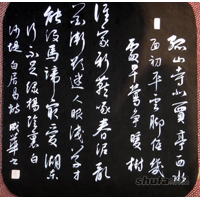 孤山寺北賈亭西水
面初平雲腳低幾
處早鶯爭暖樹
誰家新燕啄春泥亂
花漸欲迷人眼淺草才
能沒馬蹄最愛湖東
行不足綠楊陰裏白
沙堤 白居易詩